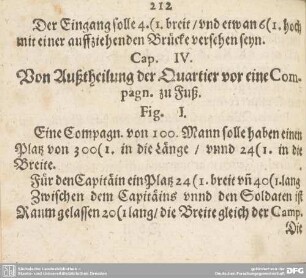 212
Der Eingang solle 4.(1. breit / vnd etwan 6(1. hoch
mit einer auffziehenden Brücke versehen seyn.
Cap. IV.
Von Außtheilung der Quartier vor eine Com-
pagn. zu Fuß.
Fig. I.
Eine Compagn. von 100. Mann solle haben einen
Platz von 300(1. in die Länge / vnnd 24(1. in die
Breite.
Für den Capitäin ein Platz 24(1. breit vñ 40(1.lang
Zwischen dem Capitäins vnnd den Soldaten ist
Raum gelassen 20(1 lang / die Breite gleich der Camp.
Die